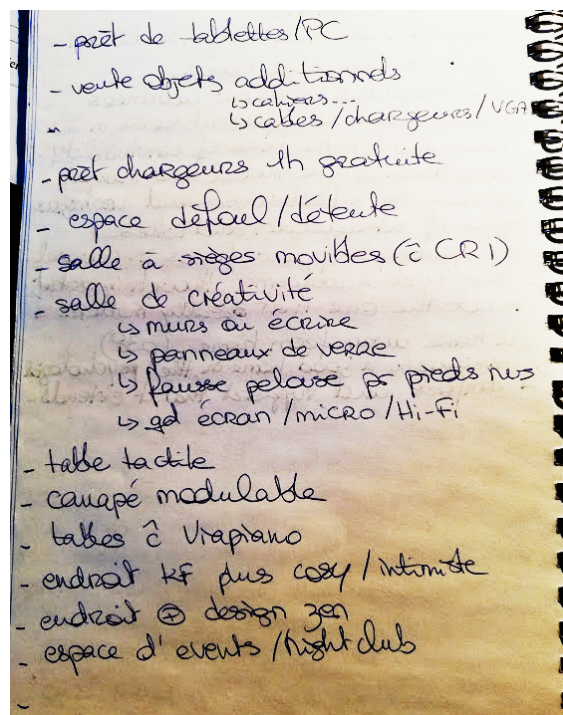 - prêt de tablettes/PC
- vente objets additionnels
↳ cahiers...
↳ cables/chargeurs/VGA
- prêt chargeurs 1h gratuite
- espace défoul/détente
- salle à sièges movibles (c̄ CRI)
- salle de créativité
↳ murs où écrire
↳ panneaux de verre
↳ fausse pelouse pr pieds nus
↳ gd écran/micro/Hi-Fi
- table tactile
- canapé modulable
- tables c̄ Viapiano
- endroit kf plus cosy/intimiste
- endroit ⊕ design zen
- espace d'events/nightclub